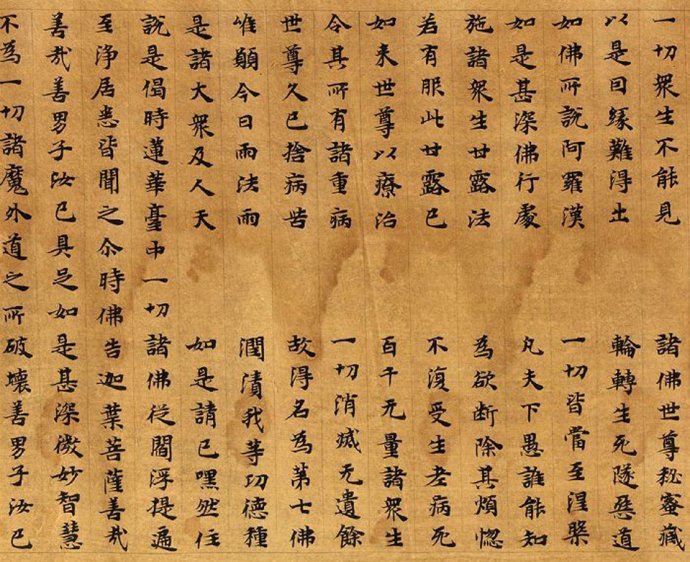 一切衆生不能見 諸佛世尊秘蜜藏
以是因緣難得出 輪轉生死隧惡道
如佛所說阿羅漢 一切皆當至涅槃
如是甚深佛行處 凡夫下愚誰能知
施諸衆生甘露法 為欲断除其煩惱
若有服此甘露已 不復受生老病死
如来世尊以療治 百千无量諸衆生
令其所有諸重病 一切消滅无遺餘
世尊久已捨病苦 故得名為第七佛
唯願今日雨法雨 潤漬我等功德種
是諸大衆及人天 如是請已嘿然住
說是偈時蓮華臺中一切諸佛從閻浮提遍
至淨居悉皆聞之尒時佛告迦葉菩薩善哉
善哉善男子汝已具足如是甚深微妙智慧
不為一切諸魔外道之所破壞善男子汝已